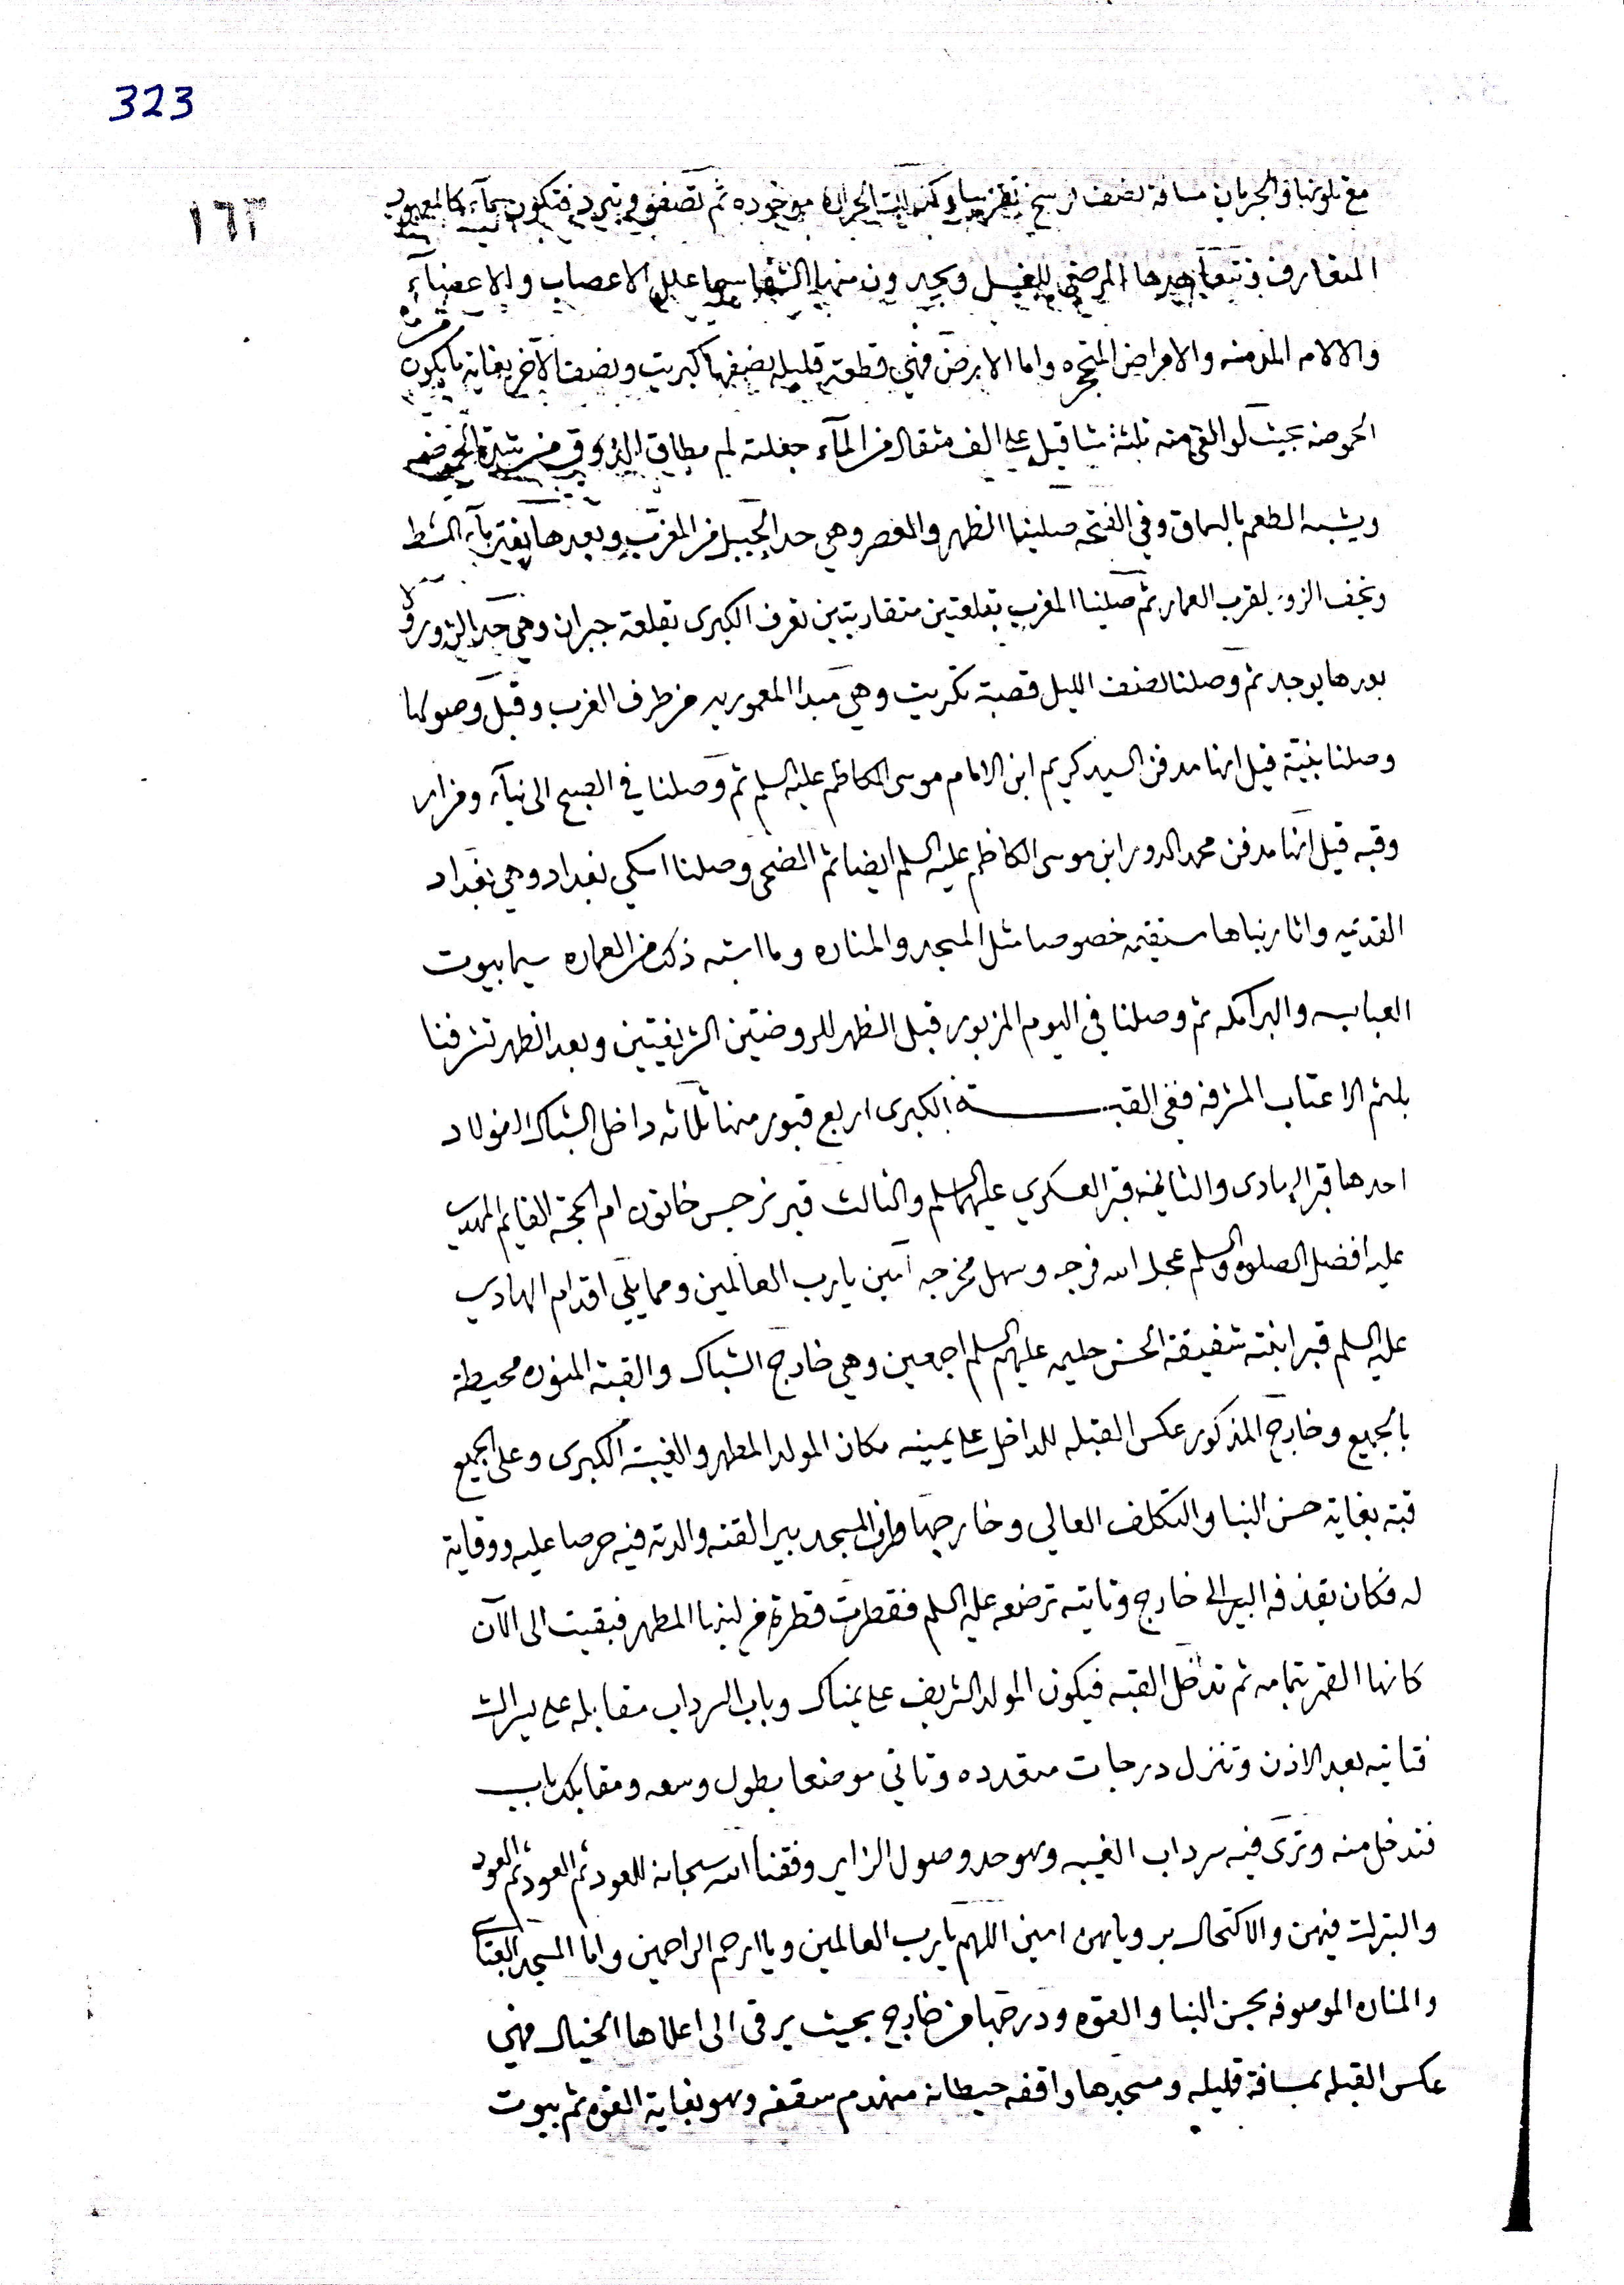 323
١٦٣
مع تلونها في الجريان مسافة نصف فرسخ تقريبا وكذلك الحراره موجوده ثم تصفو وتبرد فتكون كالمعهود
المتعارف فتتعاهدها المرضى للغسل ويجدون منها الشفا سيما علل الاعصاب والاعضآء
والالام المزمنه والامراض المتحجره واما الارض فهي قطعة قليله نصفها كبريت ونصف الآخر بغاية ما يكون من
الحموضه بحيث لو القي منه ثلثة مثاقيل على الف مثقال من المآء جعلته لم يطاق الذوق من شدة الحموضه
ويشبه الطعم بالسماق وفي الفتحه صلينا الظهر والعصر وهي حد الجبل من المغرب وبعدها يفترق مآء الشط
ويخف الزور لقرب العمار ثم صلينا المغرب بقلعتين متقاربتين تعرف الكبرى بقلعة جبران وهي حد الزور و
بورها يوجد ثم وصلنا لصنف الليل قصبة تكريت وهي مبدا المعموريه من طرف الغرب وقبل وصولها
وصلنا بنيّة قيل انها مدفن السيد كريم ابن الامام موسى الكاظم عليه السلم ثم وصلنا في الصبح الى بنآء ومزار
وقبه قيل انها مدفن محمد الدور ابن موسى الكاظم عليه السلم ايضا ثم الضحى وصلنا اسكي بغداد وهي بغداد
القديمه واثار بناها مستقيمه خصوصا مثل المسجد والمناره وما اشبه ذلك من العماره سيما بيوت
العباسيه والبرامكه ثم وصلنا في اليوم المزبور قبل الظهر للروضتين الشريفتين وبعد الظهر تشرفنا
بلثم الاعتاب المشرفه ففي القبـة الكبرى اربع قبور منها ثلاثه داخل الشباك الفولاد
احدها قبر الهادى والثاني قبر العسكري عليهما السلم والثالث قبر نرجس خاتون ام الحجة القايم المهدي
عليه افضل الصلوة والسلم عجل الله فرجه وسهل مخرجه آمين يا رب العالمين ومما يلي اقدام الهادي
عليه السلم قبر ابنته شقيقة الحسن حليمه عليهم السلم اجمعين وهي خارج الشباك والقبة المنوره محيطة
بالجميع وخارج المذكور عكس القبله للداخل على يمينه مكان المولد المطهر والغيبة الكبرى وعلى الجميع
قبة بغاية حسن البنا والتكلف العالي وخارجها طرف المسجد بير القته والدته فيه حرصا عليه ووقاية
له فكان يقذفه البير الى خارج وتاتيه ترضعه عليه السلم فقطرت قطرة من لبنها المطهر فبقيت الى الآن
كانها القمر بتمامه ثم تدخل القبه فيكون المولد الشريف على يمناك وباب السرداب مقابله على يسراك
فتاتيه بعد الاذن وتنزل درجات متعدده وتاتي موضعا بطول وسعه ومقابلك باب
فتدخل منه وترى فيه سرداب الغيبه وهو حد وصول الزاير وفقنا الله سبحانه للعود ثم العود ثم العود
والتبرك فيهن والاكتحال برويانهن امين اللهم يا رب العالمين ويا ارحم الراحمين واما المسجد العتا
والمناره الموصوفه بحسن البنا والقوه ودرجها من خارج بحيث يرقى الى اعلاها الخيال فهي
عكس القبله بمسافة قليله ومسجدها واقفه حيطانه منهدم سقفه وهو بغاية القوه ثم بيوت